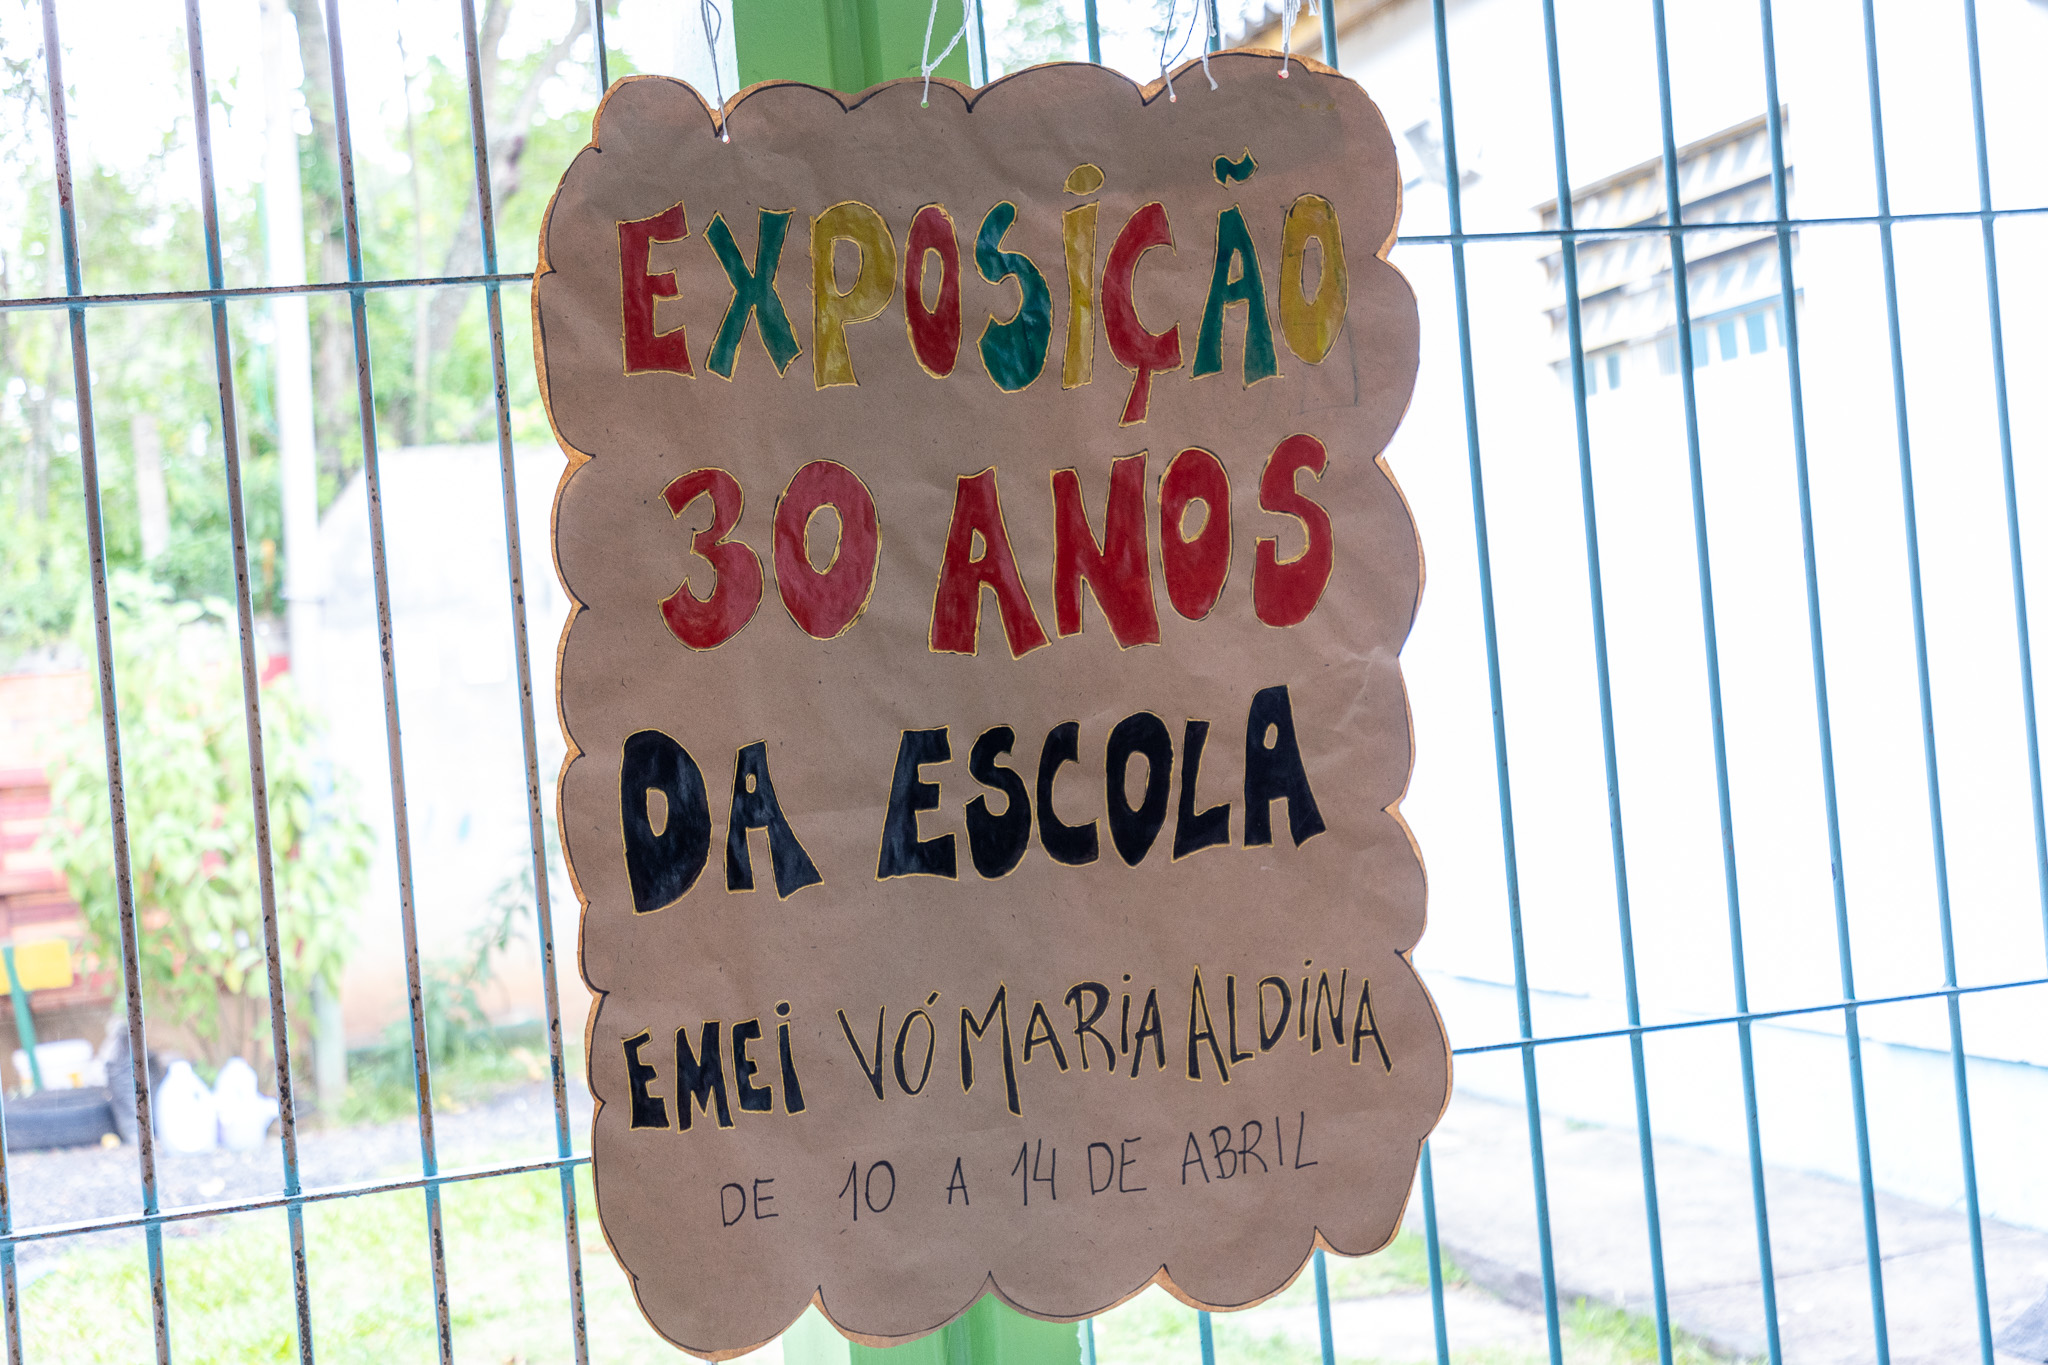 EXPOSIÇÃO
30 ANOS
DA ESCOLA
EMEI VÓ MARIA ALDINA
DE 10 A 14 DE ABRIL